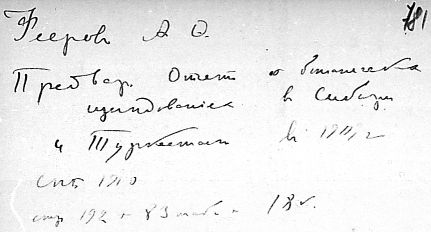 781
Фееров А О.
Предвар. Отчет о ботаническ
исследованиях в Сибири
и Туркестан в
спб 1910
стр 192 + 83 табл.